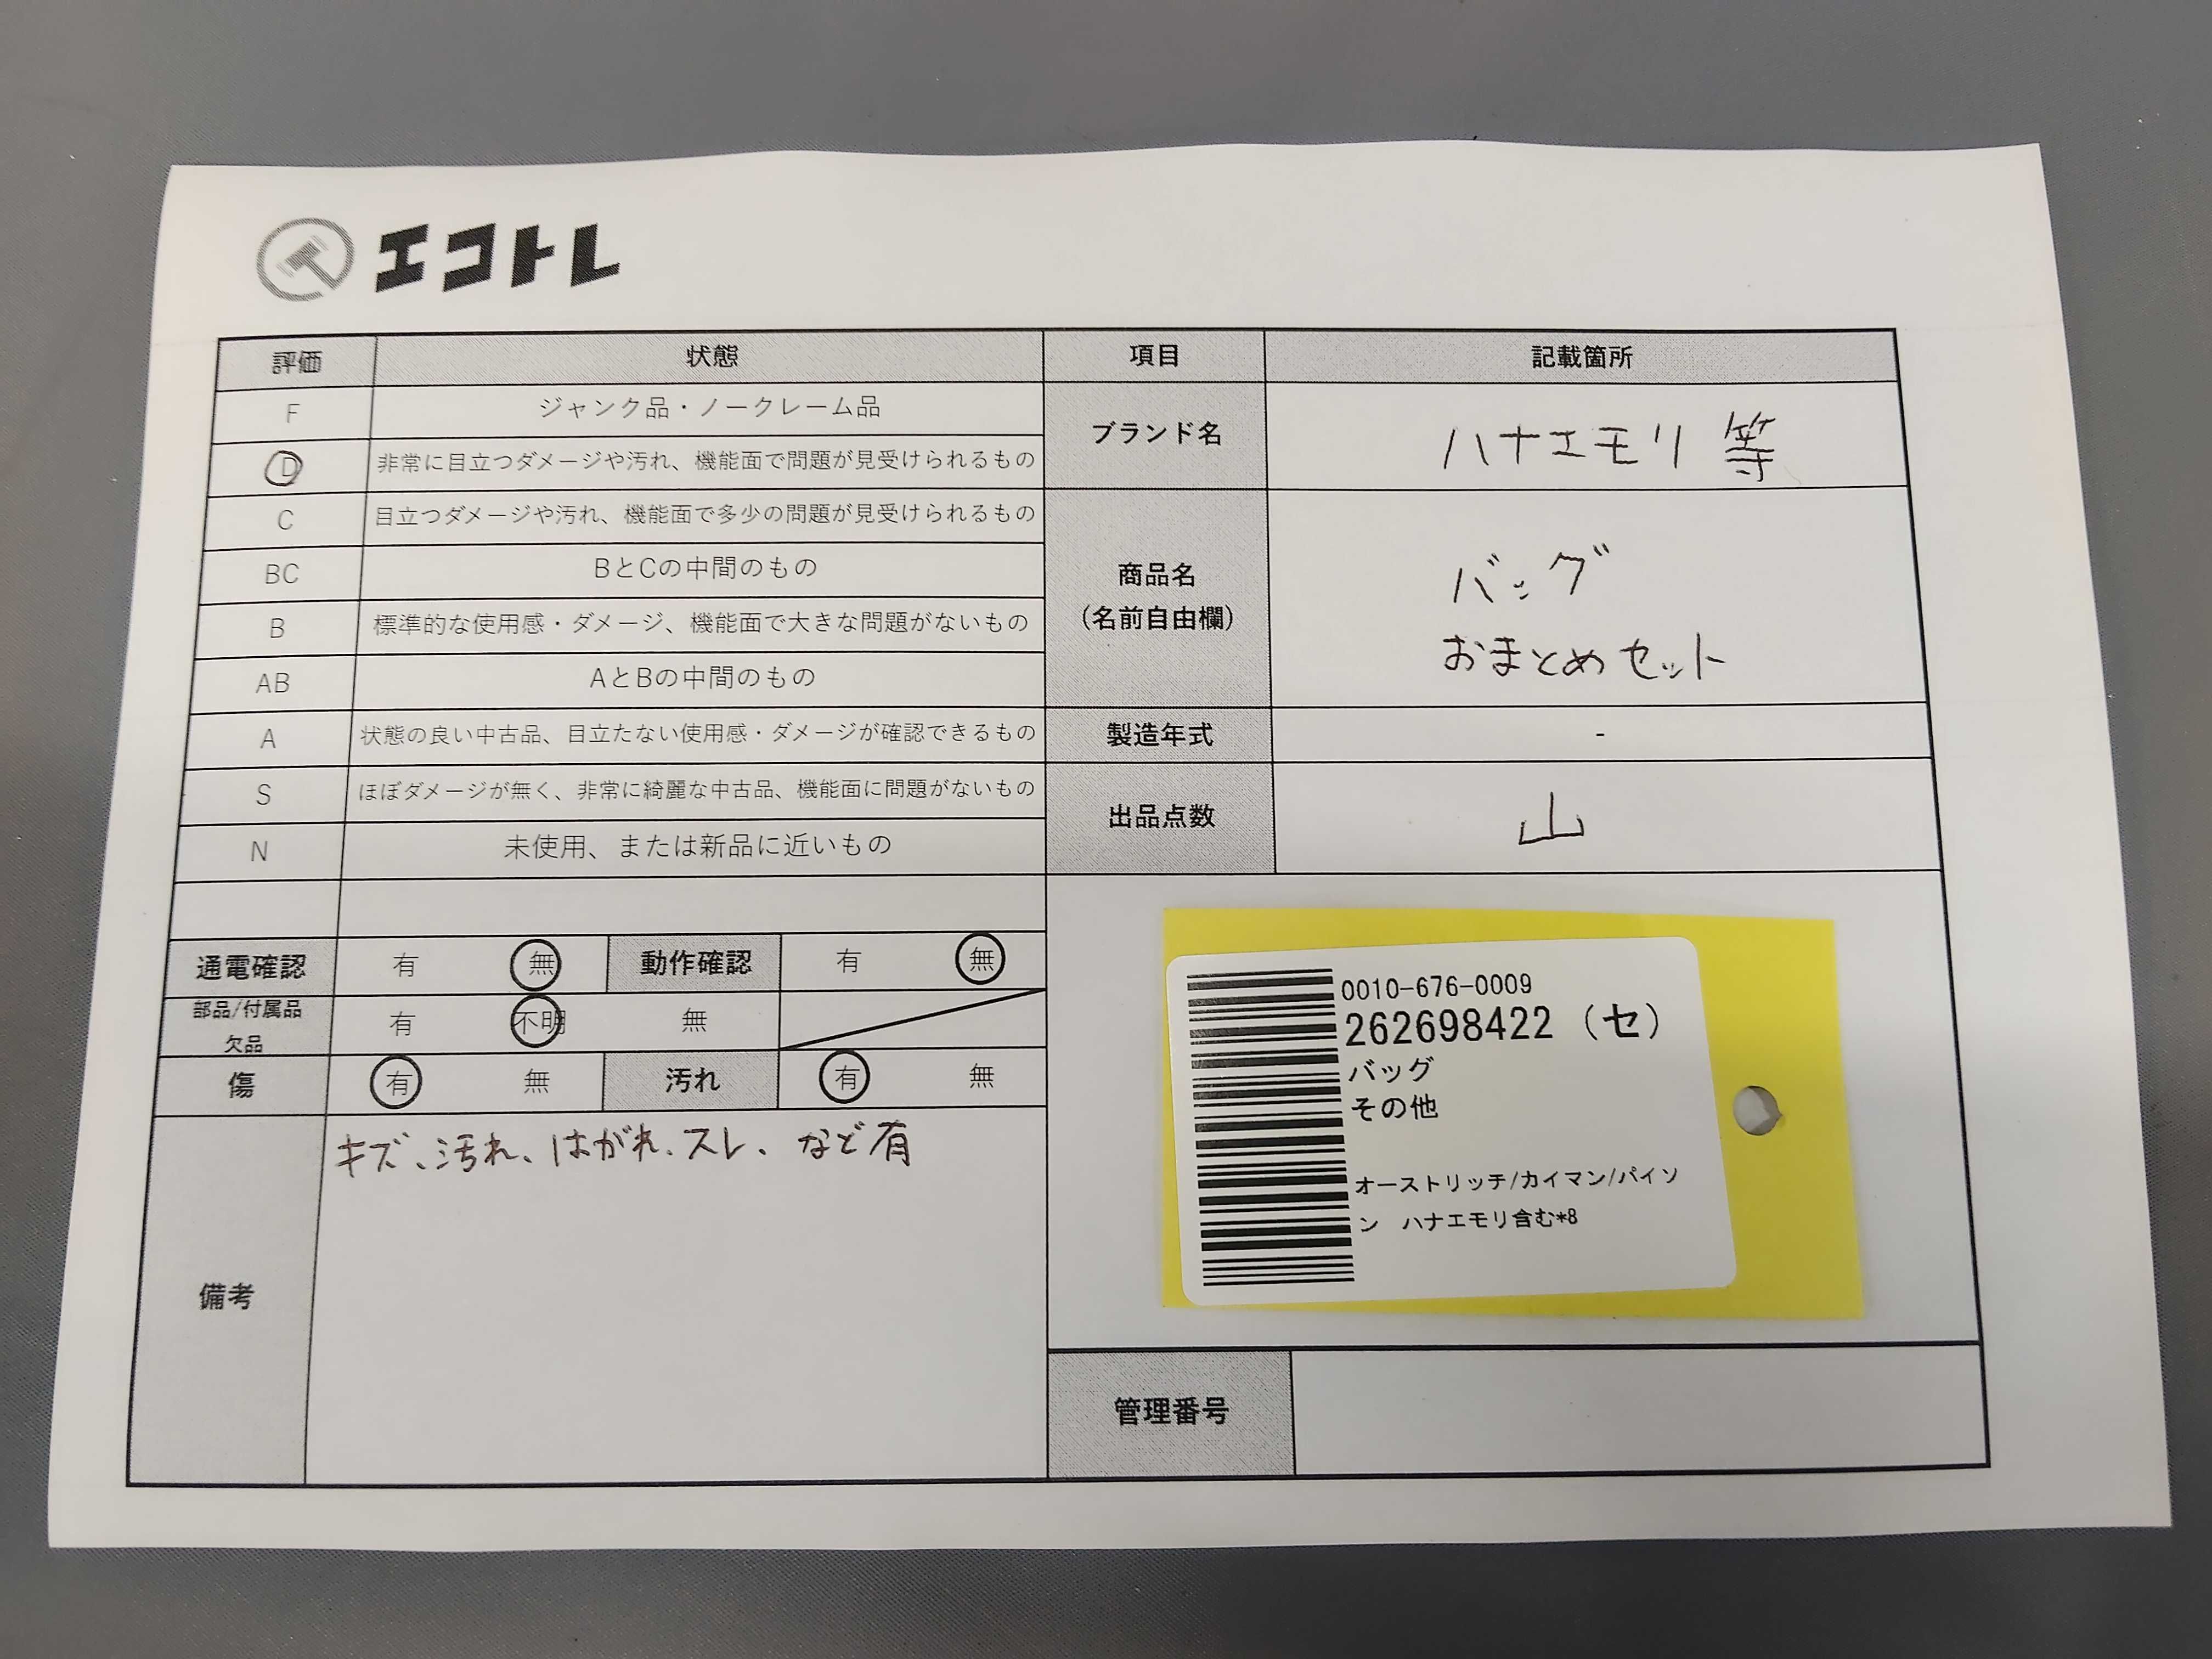 エコトレ
評価 状態 項目 記載箇所
F ジャンク品・ノークレーム品
D 非常に目立つダメージや汚れ、機能面で問題が見受けられるもの
C 目立つダメージや汚れ、機能面で多少の問題が見受けられるもの
BC BとCの中間のもの
B 標準的な使用感・ダメージ、機能面で大きな問題がないもの
AB AとBの中間のもの
A 状態の良い中古品、目立たない使用感・ダメージが確認できるもの
S ほぼダメージが無く、非常に綺麗な中古品、機能面に問題がないもの
N 未使用、または新品に近いもの
ブランド名 ハナエモリ 等
商品名
(名前自由欄)
バッグ
おまとめセット
製造年式 -
出品点数 山
通電確認 有 無 動作確認 有 無
部品/付属品
欠品
有 不明 無
傷 有 無 汚れ 有 無
備考
キズ、汚れ、はがれ、スレ、など有
0010-676-0009
262698422 (セ)
バッグ
その他
オーストリッチ/カイマン/パイソ
ン ハナエモリ含む*8
管理番号